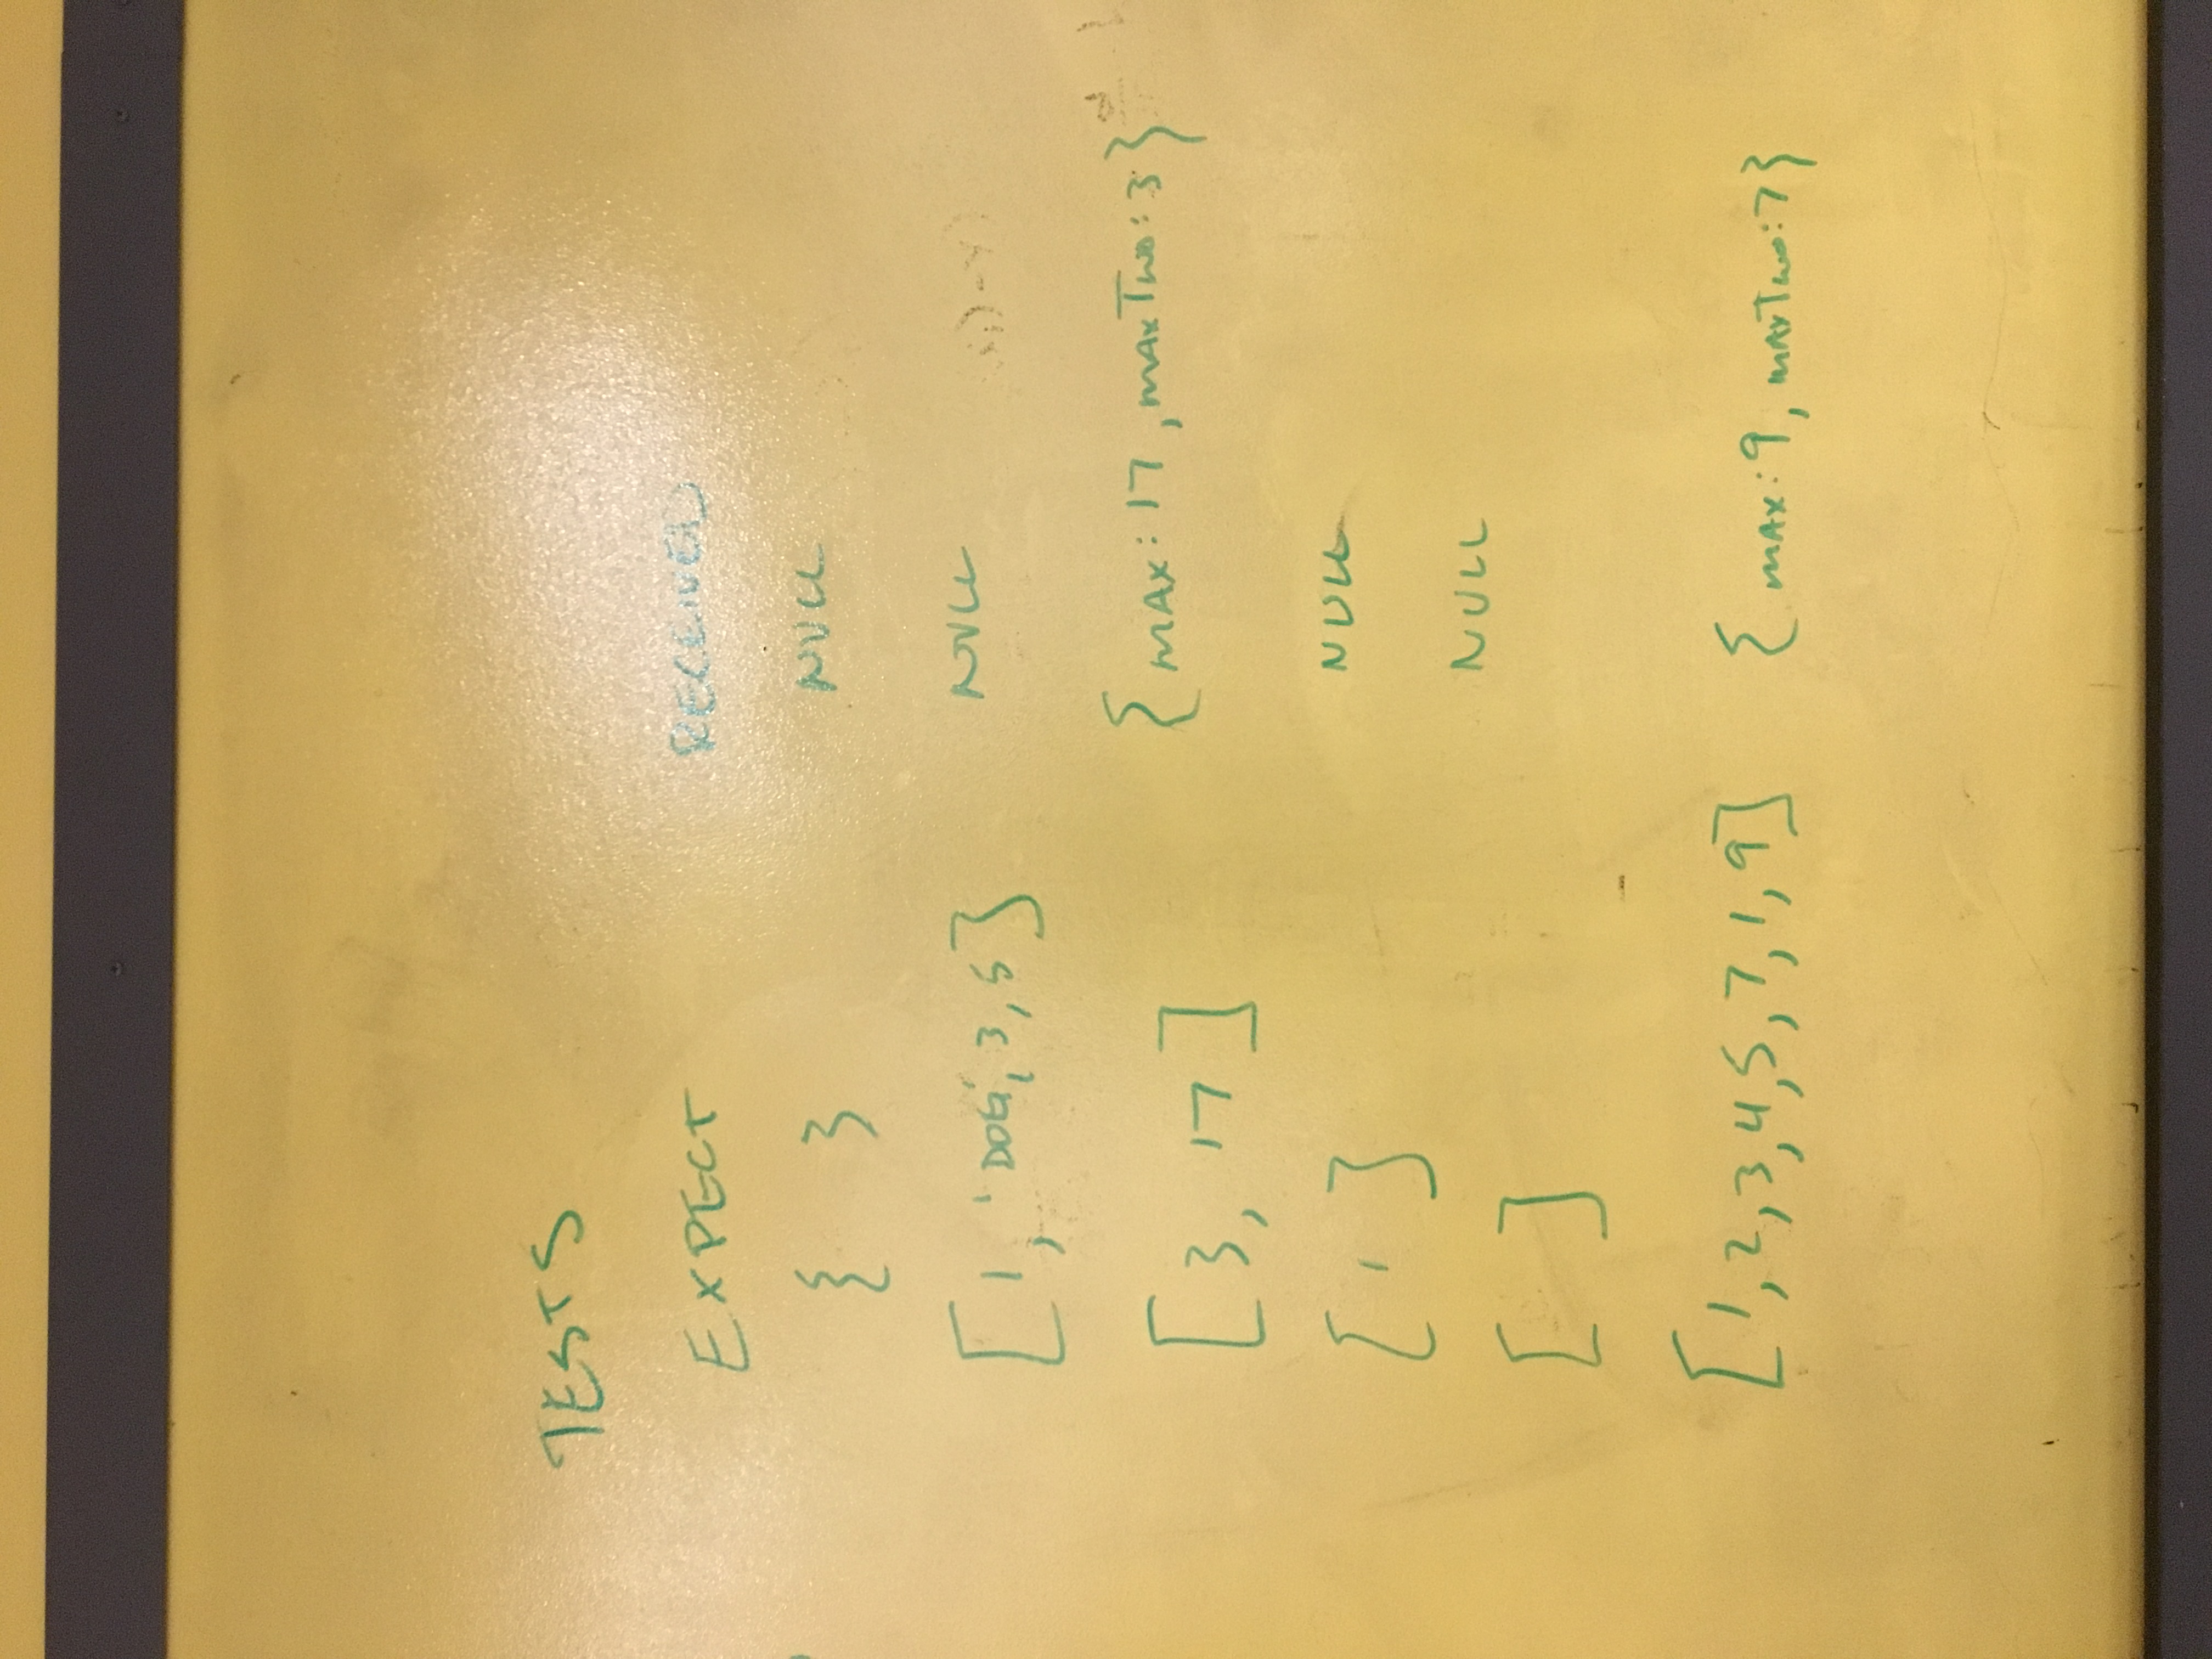 TESTS
EXPECT RECEIVED
{ } NULL
[1, 'DOG', 3, 5] NULL
[3, 17] {max: 17, maxTwo: 3}
[1] NULL
[ ] NULL
[1, 2, 3, 4, 5, 7, 1, 9] {max: 9, maxTwo: 7}